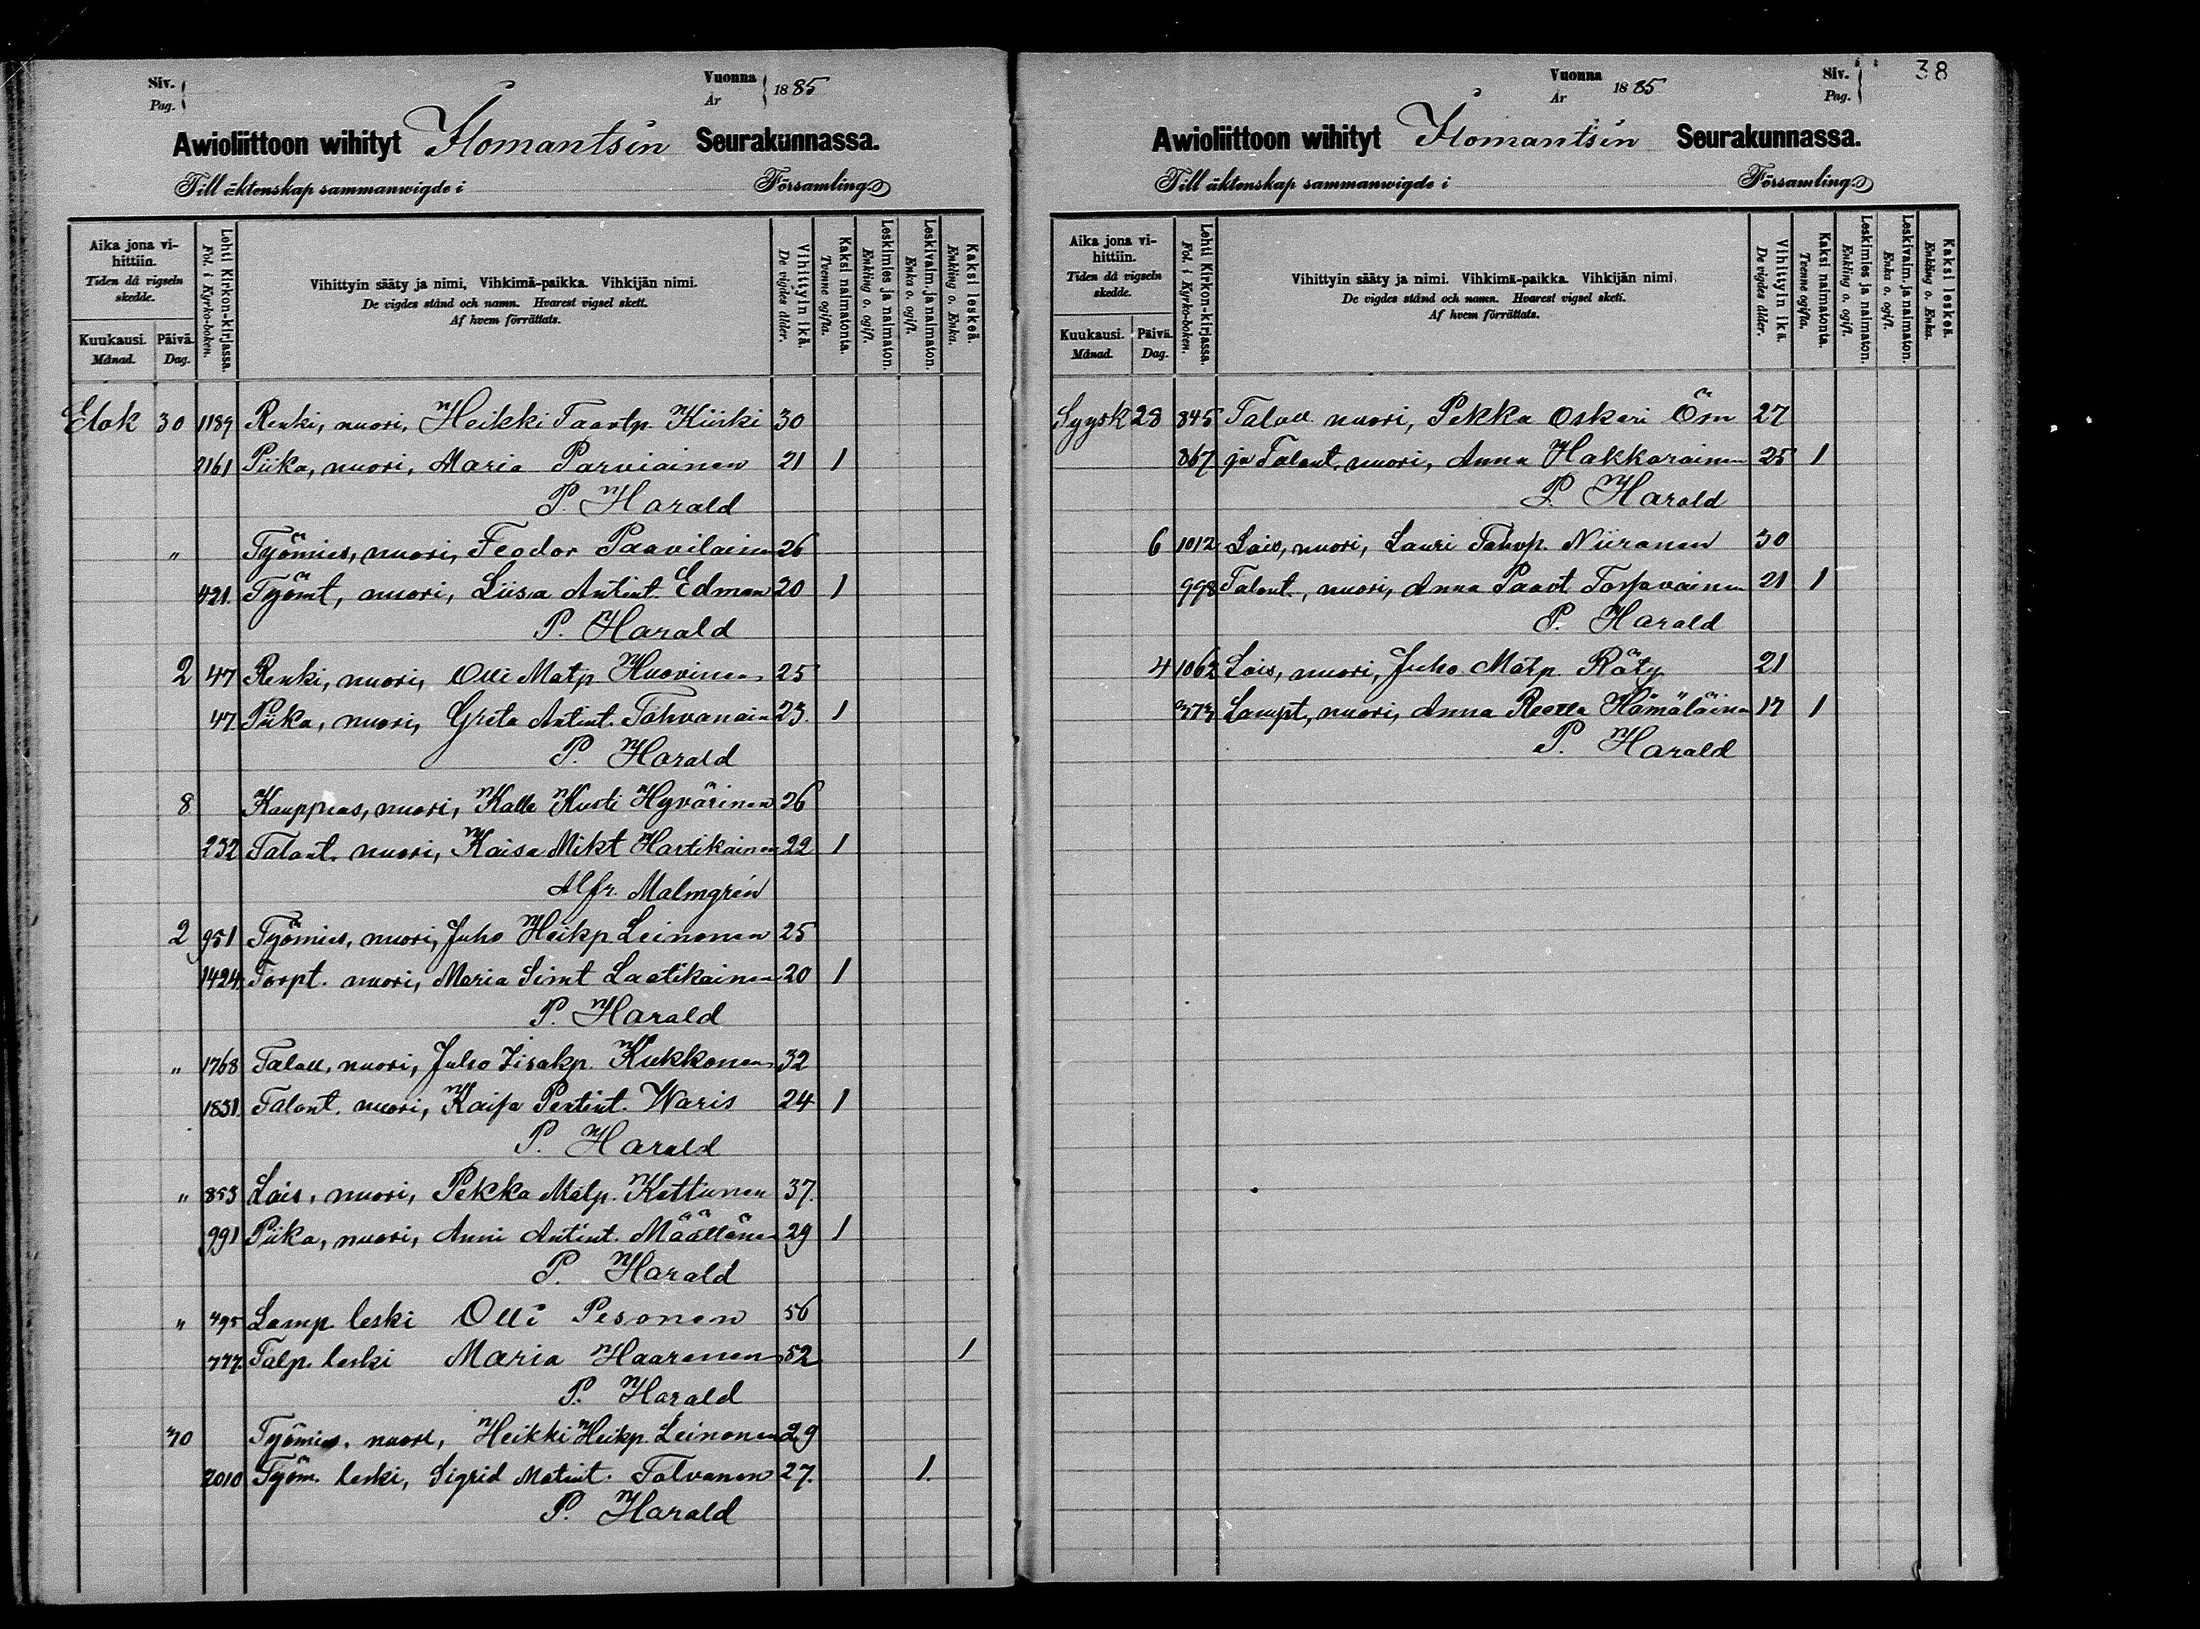 Siv.
Pag.
Vuonna
År
1885
Awioliittoon wihityt Ilomantsin Seurakunnassa.
Till äktenskap sammanwigde i Församling
Aika jona vi-
hittiin.
Tiden då vigseln
skedde.
Kuukausi.
Månad.
Päivä.
Dag.
Lehti Kirkon-kirjassa.
Fol. i Kyrko-boken.
Vihittyin sääty ja nimi, Vihkimä-paikka. Vihkijän nimi.
De vigdes stånd och namn. Hvarest vigsel skett.
Af hvem förrättats.
Vihittyin ikä.
De vigdes ålder.
Kaksi naimatonta.
Tvenne ogifta.
Leskimies ja naimaton.
Enkling o. ogift.
Leskivaim. ja naimaton.
Enka o. ogift.
Kaksi leskeä.
Enkling o. Enka.
Elok 30 1189 Renki, nuori, Heikki Taavtp. Kiiski 30
2161 Piika, nuori, Maria Parviainen 21 1
P. Harald
" Työmies, nuori, Feodor Paavilainen 26
421. Työmt, nuori, Liisa Antint. Edman 20 1
P. Harald
2 47 Renki, nuori, Olli Matp Huovinen 25
47. Piika, nuori, Greta Antint. Tahvanain 23. 1
P. Harald
8 Kauppias, nuori, Kalle Kusti Hyvärinen 26
232 Talont. nuori, Kaisa Mikt Hartikainen 22 1
Alfr. Malmgrén
2 951 Työmies, nuori, Juho Heikp Leinonen 25
1424 Torpt. nuori, Maria Simt Laatikainen 20 1
P. Harald
" 1768 Talall. nuori, Juho Iisakp. Kukkonen 32
1831 Talont. nuori, Kaisa Pertint. Waris 24 1
P. Harald
" 853 Lois, nuori, Pekka Matp. Kettunen 37.
991 Piika, nuori, Anni Antint. Määttänen 29 1
P. Harald
" 495 Lamp. leski Olli Pesonen 56
777. Talp. leski Maria Haaranen 52 1
P. Harald
30 Työmies, nuori, Heikki Heikp. Leinonen 29
2010 Työm. leski, Sigrid Matint. Tolvanen 27. 1.
P. Harald
Vuonna
År
1885
Siv.
Pag.
38
Awioliittoon wihityt Ilomantsin Seurakunnassa.
Till äktenskap sammanwigde i Församling
Aika jona vi-
hittiin.
Tiden då vigseln
skedde.
Kuukausi.
Månad.
Päivä.
Dag.
Lehti Kirkon-kirjassa.
Fol. i Kyrko-boken.
Vihittyin sääty ja nimi. Vihkimä-paikka. Vihkijän nimi.
De vigdes stånd och namn. Hvarest vigsel skett.
Af hvem förrättats.
Vihittyin ikä.
De vigdes ålder.
Kaksi naimatonta.
Tvenne ogifta.
Leskimies ja naimaton.
Enkling o. ogift.
Leskivaim. ja naimaton.
Enka o. ogift.
Kaksi leskeä.
Enkling o. Enka.
Syysk 28 845 Talall. nuori, Pekka Oskari Öm 27
867 ja Talont. nuori, Anna Hakkarainen 25 1
P. Harald
6 1012 Lois, nuori, Lauri Tahvp. Niiranen 30
998 Talont., nuori, Anna Paavt Torssvainen 21 1
P. Harald
4 1062 Lois, nuori, Juho Matp. Räty 21
373 Lampt, nuori, Anna Reetta Hämäläinen 17 1
P. Harald